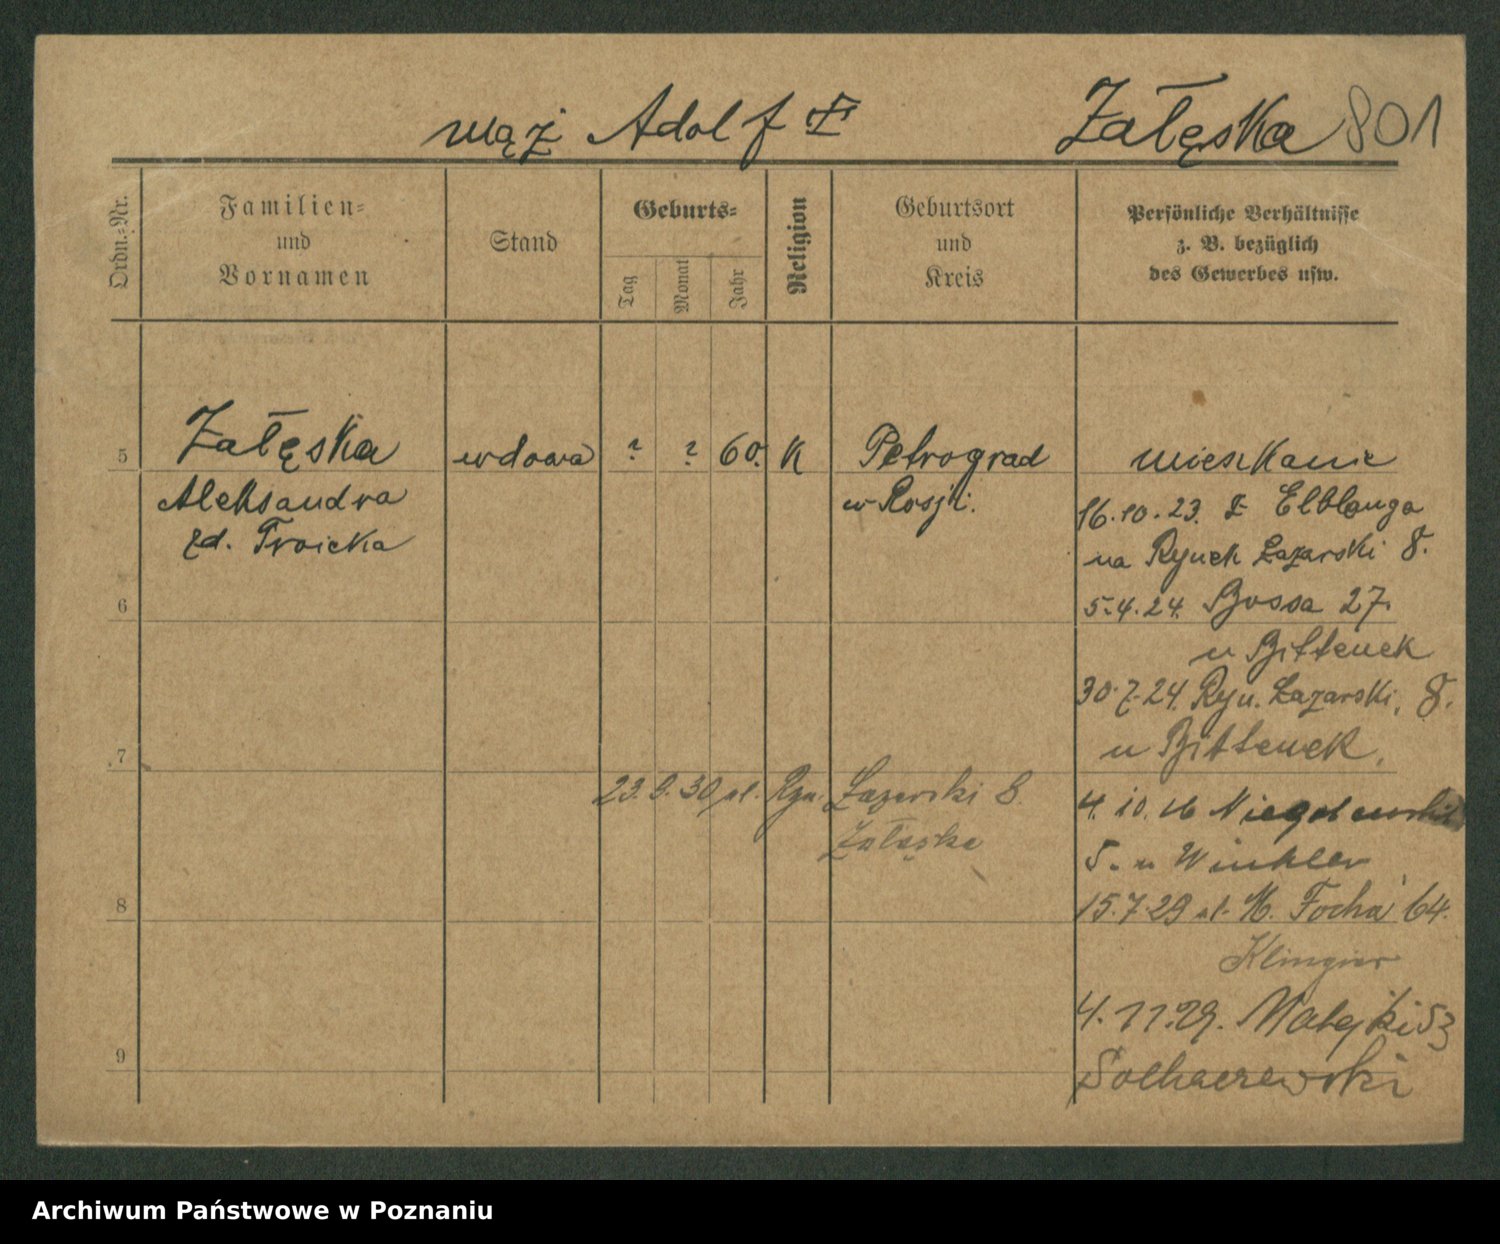 mąż Adolf Z Załęska 801
Ordn.-Nr.
Familien-
und
Vornamen
Stand
Geburts-
Tag
Monat
Jahr
Religion
Geburtsort
und
Kreis
Persönliche Verhältnisse
z. B. bezüglich
des Gewerbes usw.
5 Załęska wdowa ? ? 60. K Petrograd mieszkanie
Aleksandra w Rosji. 16.10.23. z Elbląga
zd. Troicka na Rynek Łazarski 8.
6 5.4.24. Bossa 27.
u Bittenek
30.7.24. Ryn. Łazarski, 8.
7 u Bittenek.
23.9.30 pl. Ryn. Łazarski 8. 4.10.26
Załęska 5. u Winkler
8 15.7.29 ul. M. Focha 64.
Klingier
4.11.29. Matejki 53
9